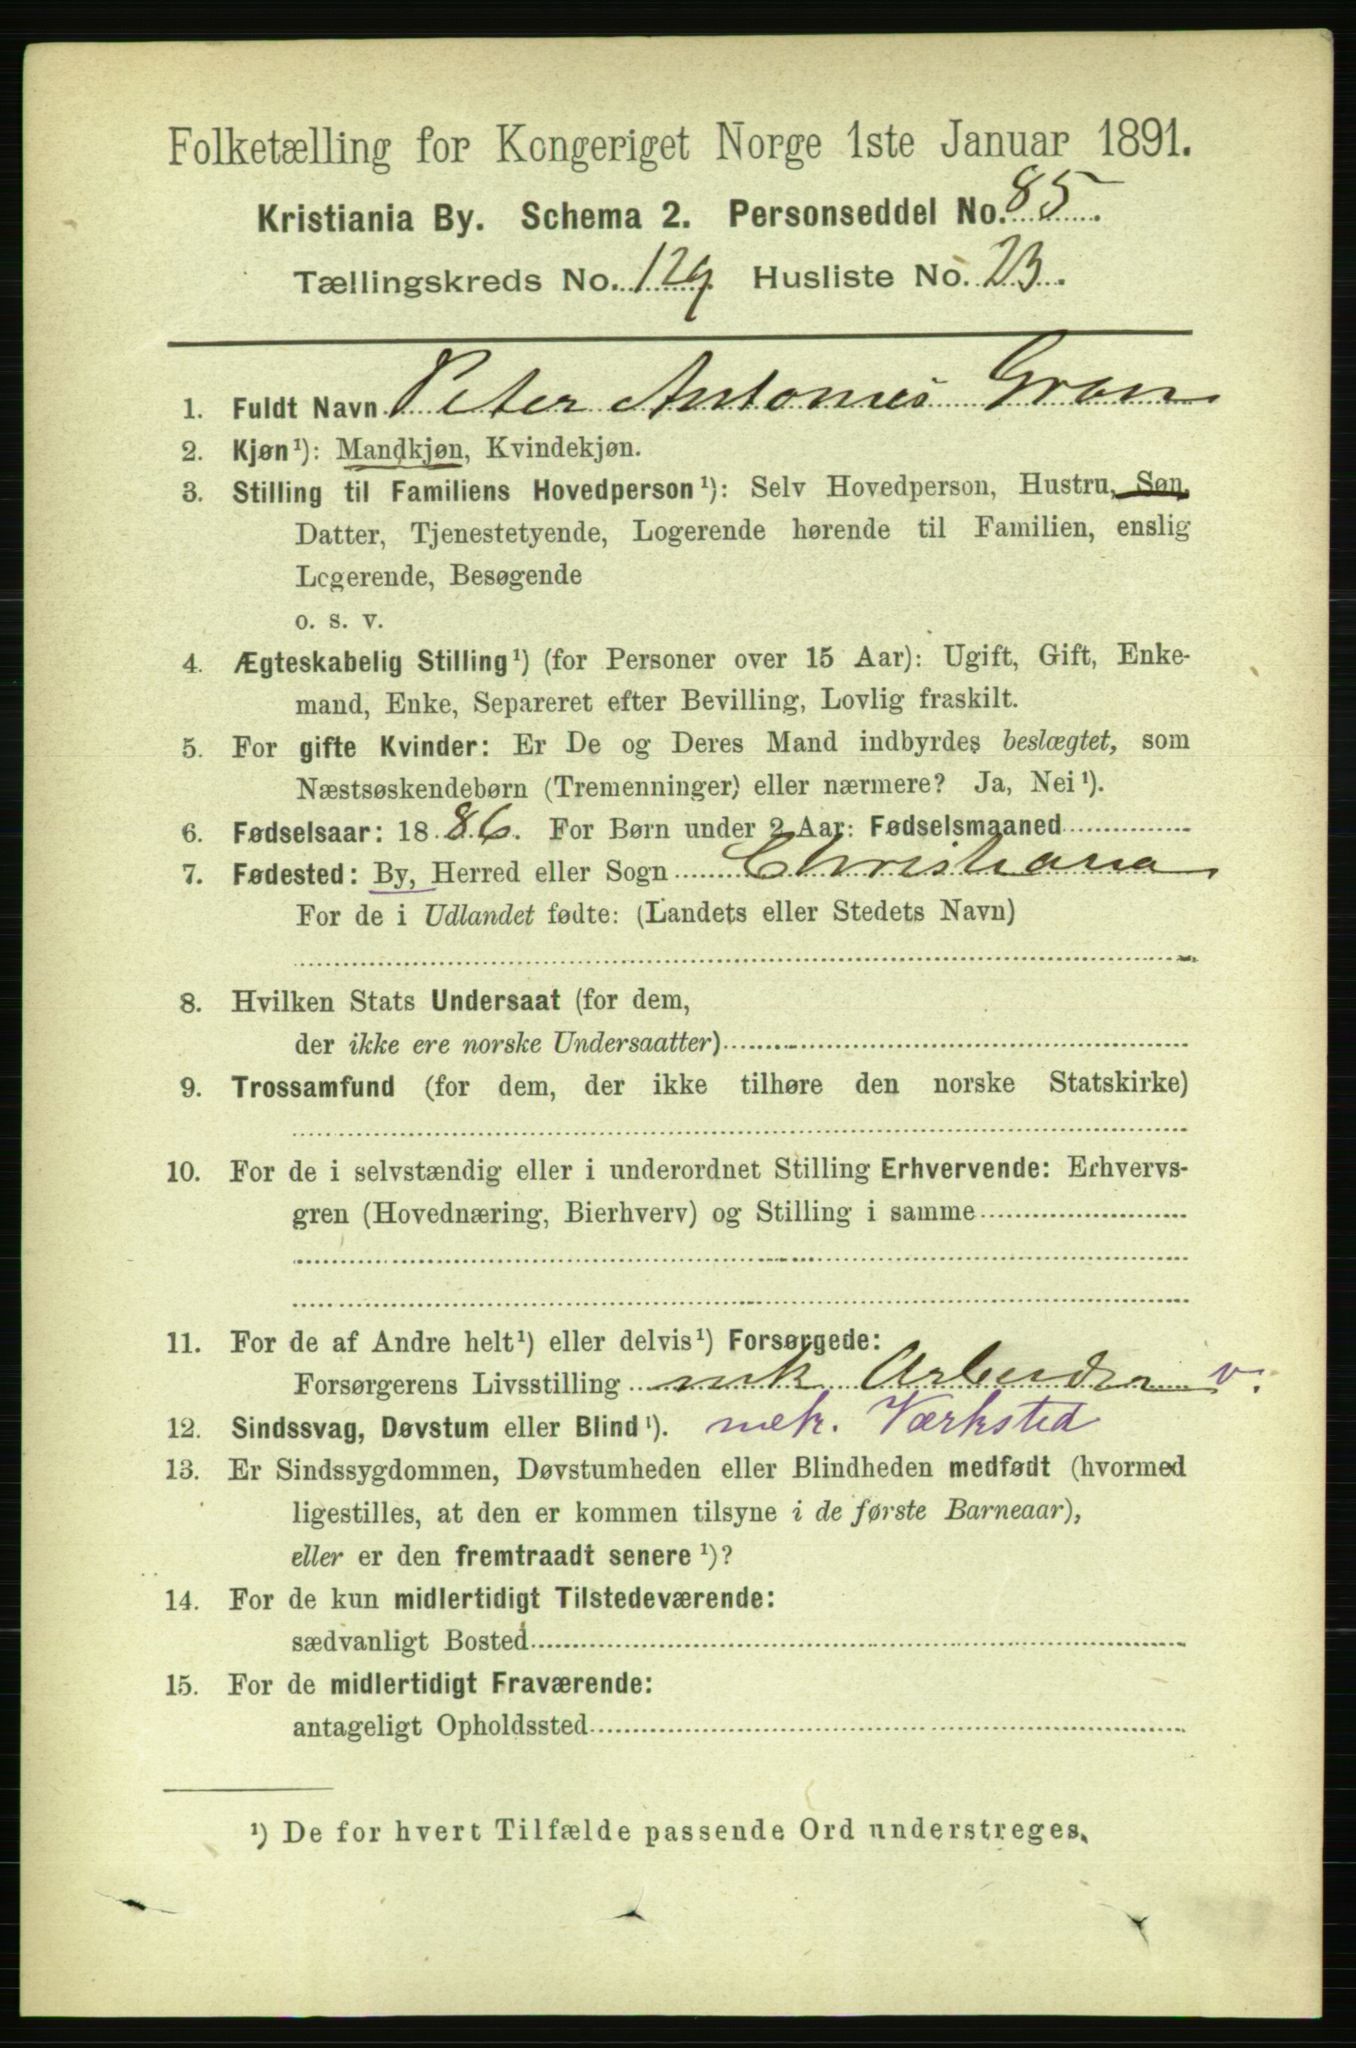 Folketælling for Kongeriget Norge 1ste Januar 1891.
Kristiania By. Schema 2. Personseddel No. 85.
Tællingskreds No. 129 Husliste No. 23.
1. Fuldt Navn Peter Antonius Gran
2. Kjøn¹): Mandkjøn, Kvindekjøn.
3. Stilling til Familiens Hovedperson¹): Selv Hovedperson, Hustru, Søn,
Datter, Tjenestetyende, Logerende hørende til Familien, enslig
Logerende, Besøgende
o. s. v.
4. Ægteskabelig Stilling¹) (for Personer over 15 Aar): Ugift, Gift, Enke-
mand, Enke, Separeret efter Bevilling, Lovlig fraskilt.
5. For gifte Kvinder: Er De og Deres Mand indbyrdes beslægtet, som
Næstsøskendebørn (Tremenninger) eller nærmere? Ja, Nei¹).
6. Fødselsaar: 1886. For Børn under 2 Aar: Fødselsmaaned
7. Fødested: By, Herred eller Sogn Christiana
For de i Udlandet fødte: (Landets eller Stedets Navn)
8. Hvilken Stats Undersaat (for dem,
der ikke ere norske Undersaatter)
9. Trossamfund (for dem, der ikke tilhøre den norske Statskirke)
10. For de i selvstændig eller i underordnet Stilling Erhvervende: Erhvervs-
gren (Hovednæring, Bierhverv) og Stilling i samme
11. For de af Andre helt¹) eller delvis¹) Forsørgede:
Forsørgerens Livsstilling mk Arbeider v.
12. Sindssvag, Døvstum eller Blind¹). mek. Værksted
13. Er Sindssygdommen, Døvstumheden eller Blindheden medfødt (hvormed
ligestilles, at den er kommen tilsyne i de første Barneaar),
eller er den fremtraadt senere¹)?
14. For de kun midlertidigt Tilstedeværende:
sædvanligt Bosted
15. For de midlertidigt Fraværende:
antageligt Opholdssted
¹) De for hvert Tilfælde passende Ord understreges.